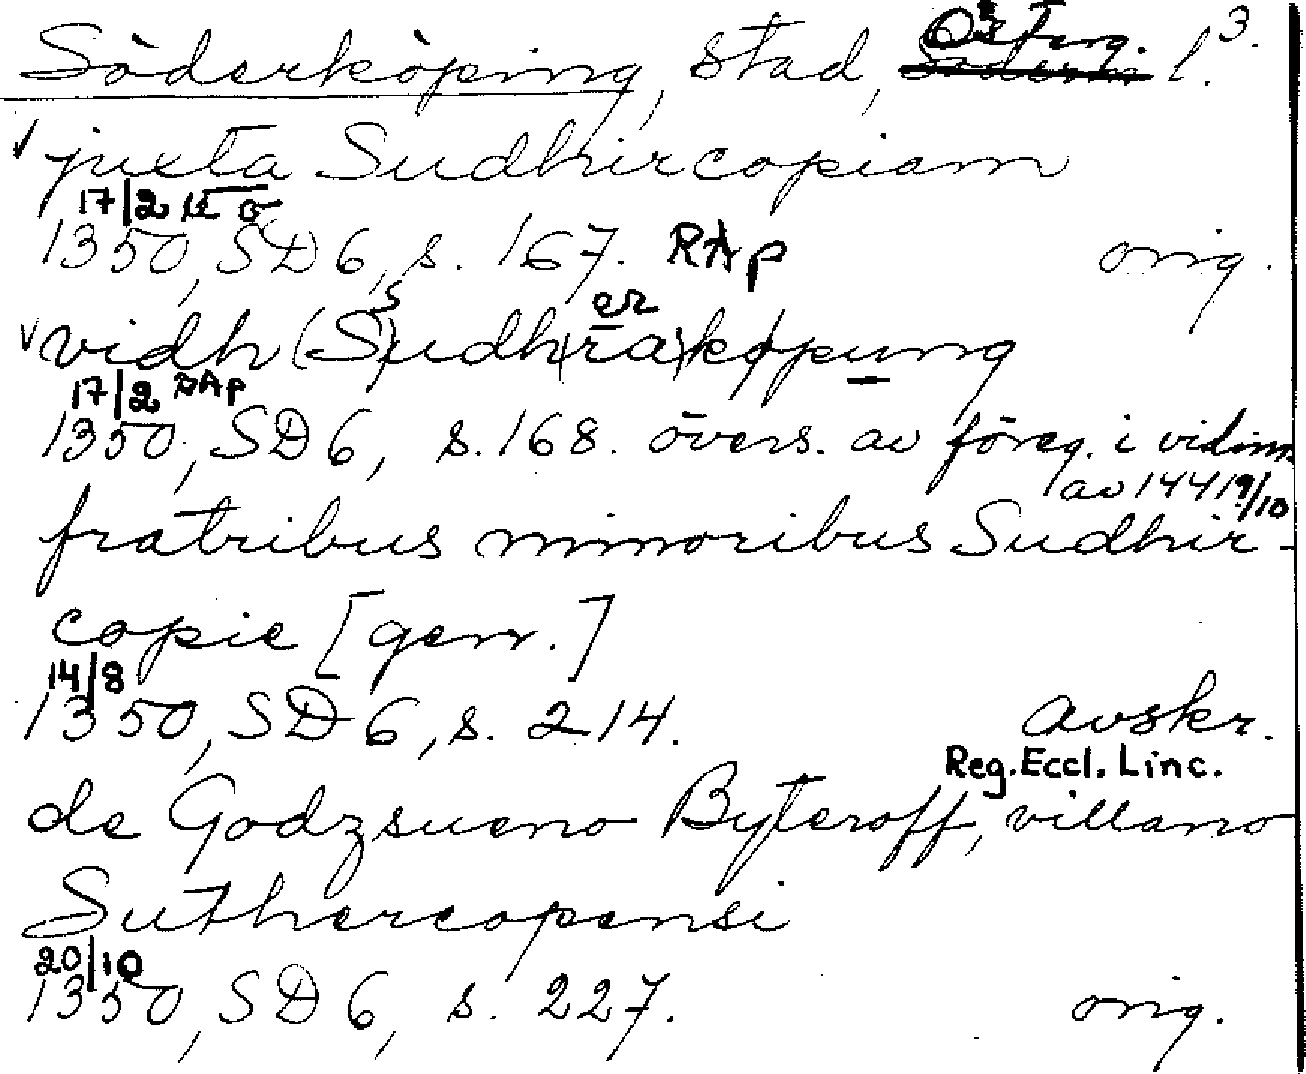 Söderköping, stad, Österg. l. 3.
juxta Sudhircopiam
17/2
1350, SD 6, s. 167. RAp orig.
s er
vidh (S)udh(ra)køpung
17/2 RAp
1350, SD 6, s. 168. övers. av föreg. i vidim.
av 1441 9/10
fratribus minoribus Sudhir-
copie [gen.]
14/8
1350, SD 6, s. 214. avskr.
Reg. Eccl. Linc.
de Godzsueno Byteroff, villano
Suthercopensi
20/10
1350, SD 6, s. 227. orig.